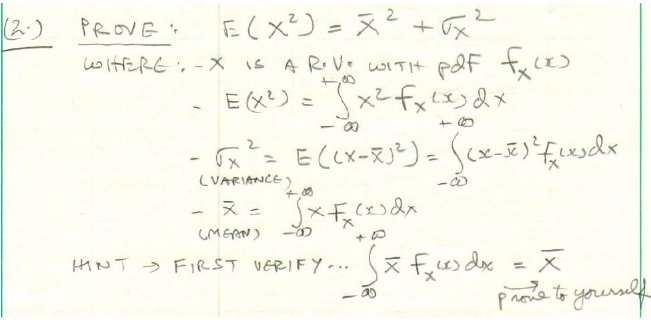 (2.) PROVE: E(X²) = x̄² + σx²
WHERE: - X IS A R.V. WITH pdf fx(x)
- E(X²) = ∫_{-∞}^{+∞} x² fx(x) dx
- σx² = E((X-x̄)²) = ∫_{-∞}^{+∞} (x-x̄)² fx(x) dx
(VARIANCE)
- x̄ = ∫_{-∞}^{+∞} x fx(x) dx
(MEAN)
HINT → FIRST VERIFY... ∫_{-∞}^{+∞} x̄ fx(x) dx = x̄
prove to yourself